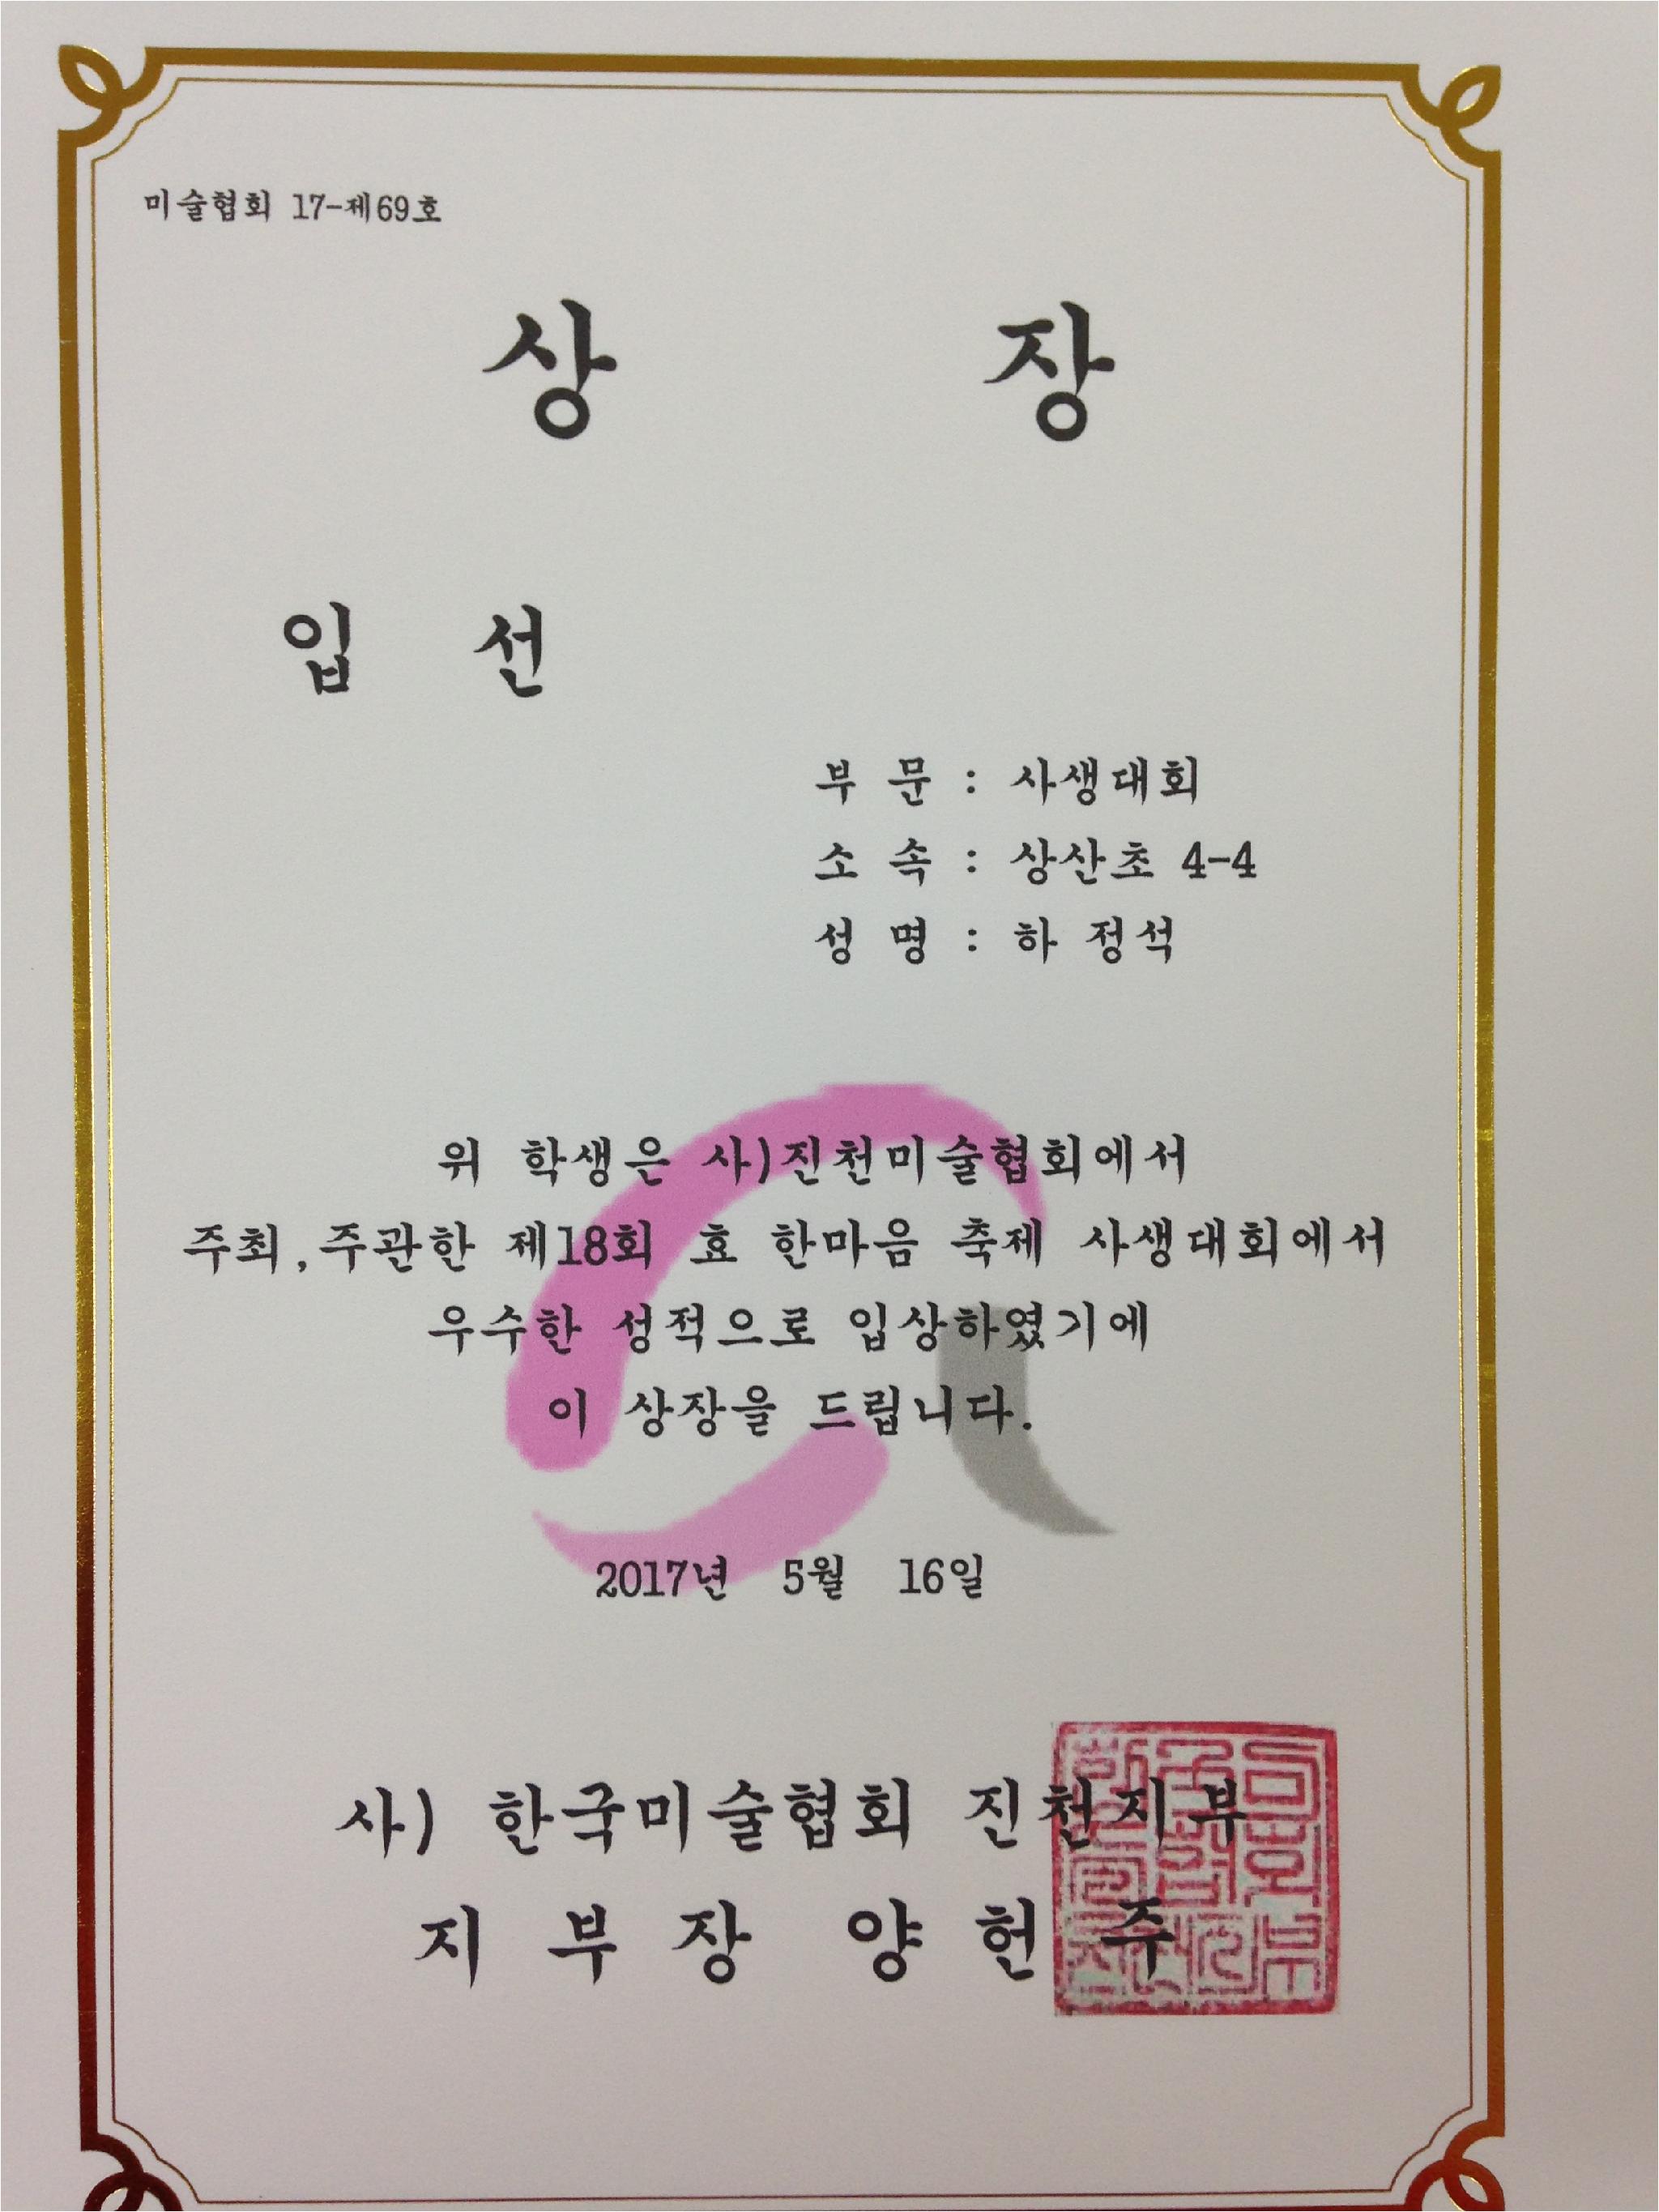 미술협회 17-제69호
상 장
입 선
부 문 : 사생대회
소 속 : 상산초 4-4
성 명 : 하 정석
위 학생은 사)진천미술협회에서
주최,주관한 제18회 효 한마음 축제 사생대회에서
우수한 성적으로 입상하였기에
이 상장을 드립니다.
2017년 5월 16일
사) 한국미술협회 진천지부
지 부 장 양 헌 주